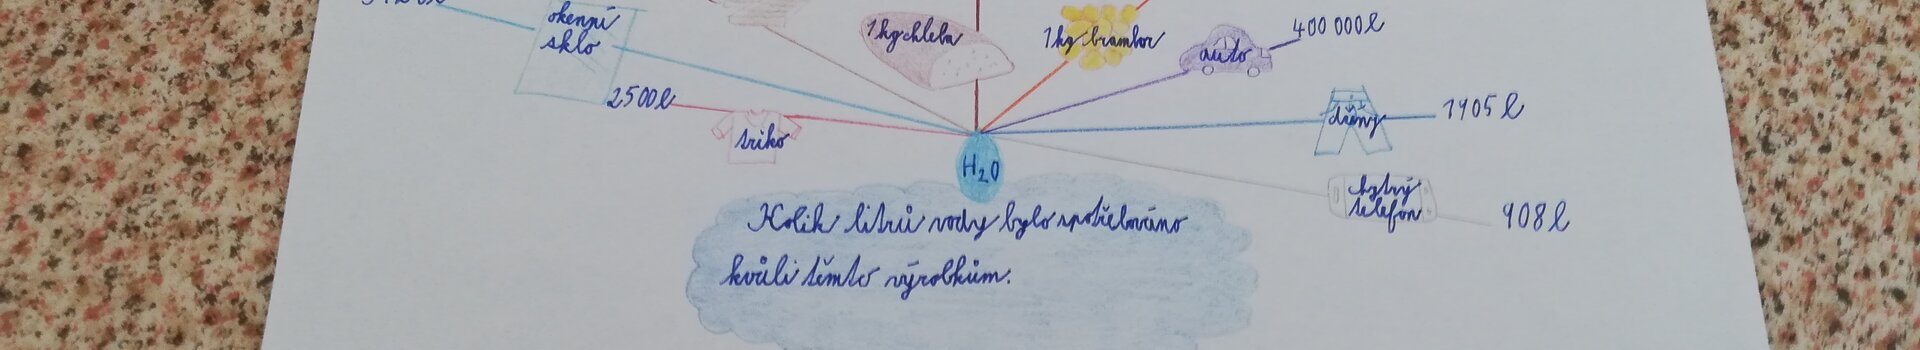 okenní
sklo
1 kg chleba
1 kg brambor
auto
400 000 l
2500 l
triko
džíny
1905 l
H₂O
chytrý
telefon
908 l
Kolik litrů vody bylo spotřebováno
kvůli těmto výrobkům.